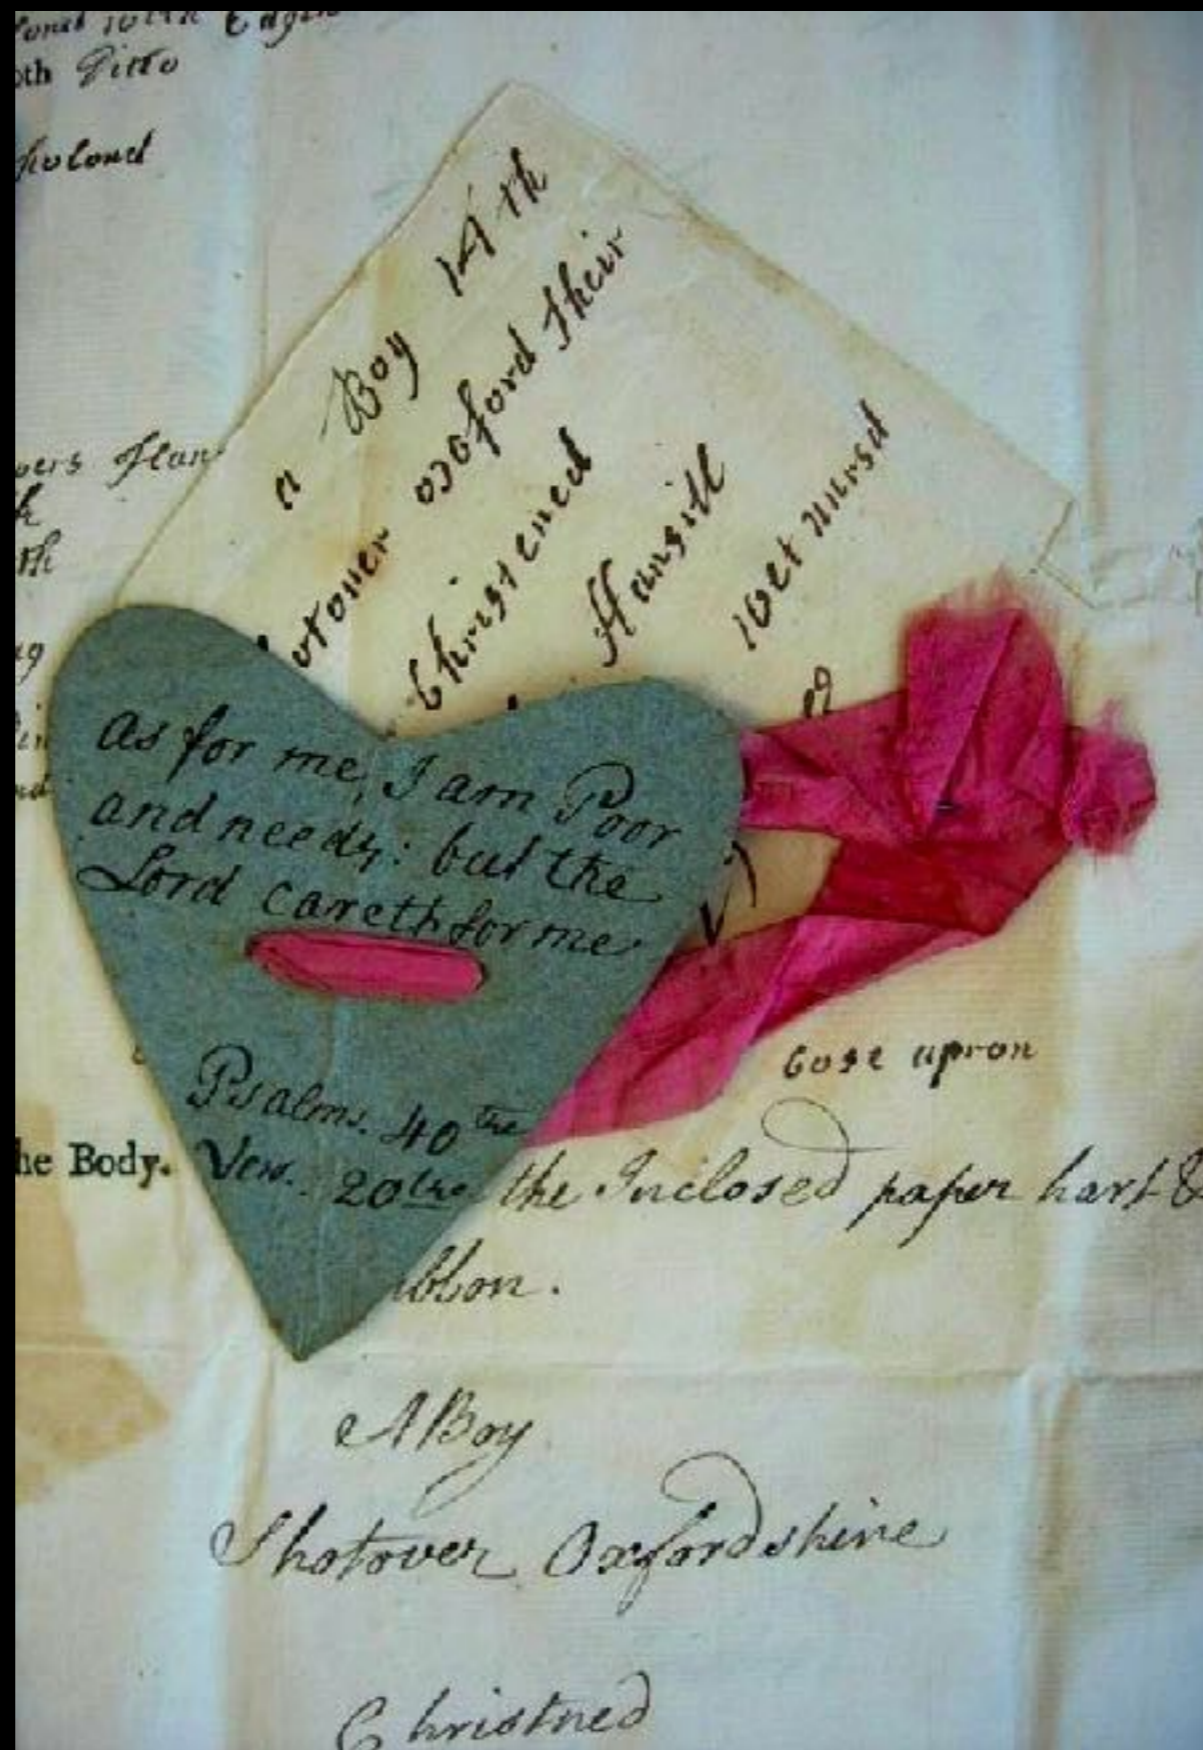 with
oth Ditto
a Boy 14th
oxoford their
Christened
Hansill
wet nursd
as for me, I am Poor
and needy: but the
Lord careth for me
Psalms. 40the
Ver. 20the
bose apron
he Body.
the Inclosed paper hart &
ibbon.
A Boy
Shotover Oxfordshire
Christned